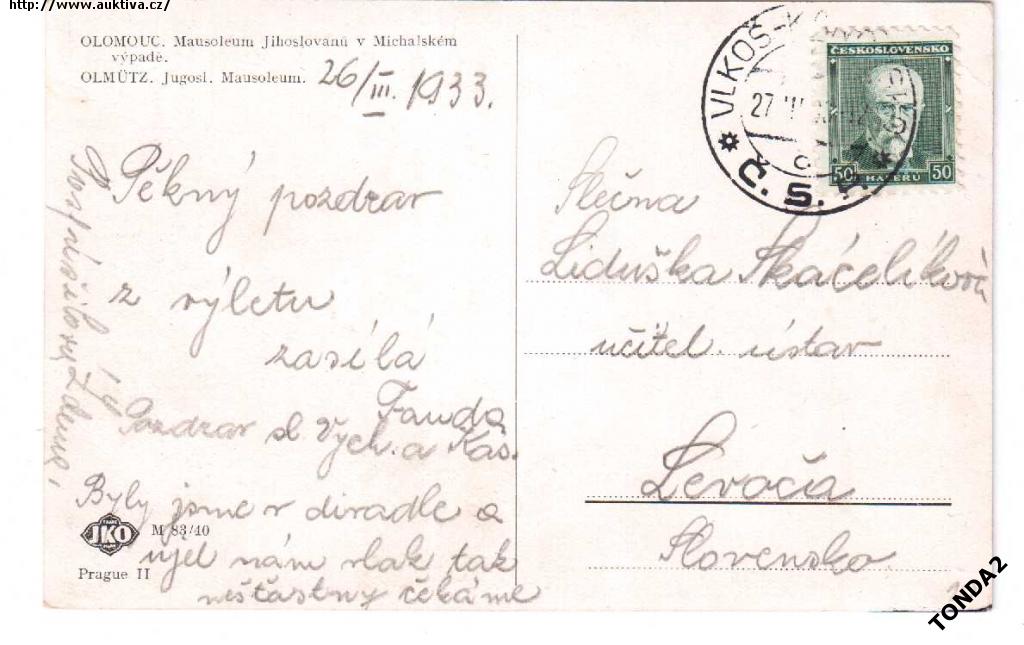 http://www.auktiva.cz/
OLOMOUC. Mausoleum Jihoslovanů v Michalském
výpadě.
OLMÜTZ. Jugosl. Mausoleum.
26/III. 1933.
Pěkný pozdrav
z výletu
zasílá
Fanda
Pozdrav sl. Vych. a Kás.
Byly jsme v divadle a
ujel nám vlak tak
nešťastny čekáme
JKO
M 83/40
Prague II
VLKOŠ
27
Č. S. R.
ČESKOSLOVENSKO
50 HALÉŘŮ 50
Slečna
Liduška Skáčelíková
učitel. ústav
Levoča
Slovensko
TONDA2